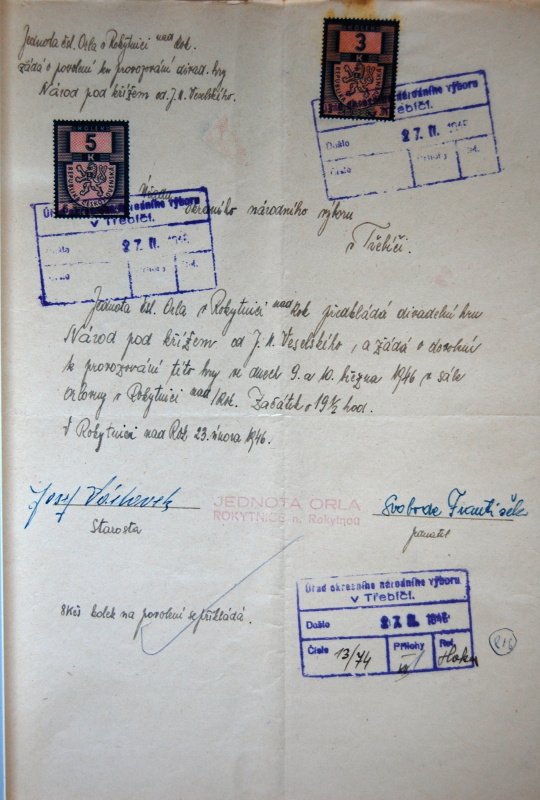 Jednota čsl. Orla v Rokytnici nad Rok.
žádá o povolení ku provozování divad. hry
Národ pod křížem od J. N. Veselského.
KOLEK
3
K
REPUBLIKA ČESKOSLOVENSKÁ
KOLEK
5
K
REPUBLIKA ČESKOSLOVENSKÁ
Úřad okresního národního výboru
v Třebíči.
Došlo 27. II. 1946
Číslo Přílohy Ref.
Úřad okresního národního výboru
v Třebíči.
Došlo 27. II. 1946
Číslo Přílohy Ref.
Úřadu
okresního národního výboru
v Třebíči.
Jednota čsl. Orla v Rokytnici nad Rok předkládá divadelní hru
Národ pod křížem od J. N. Veselského, a žádá o dovolení
k provozování této hry ve dnech 9. a 10. března 1946 v sále
orlovny v Rokytnici nad/Rok. Začátek o 19½ hod.
V Rokytnici nad Rok. 23. února 1946.
Josef
Starosta
JEDNOTA ORLA
ROKYTNICE n. Rokytnou
Svoboda František
jednatel
8Kčs kolek na povolení se přikládá.
Úřad okresního národního výboru
v Třebíči.
Došlo 27. II. 1946
Číslo 13/74 Přílohy Ref.